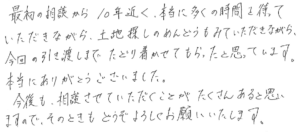 最初の相談から10年近く、本当に多くの時間を待って
いただきながら、土地探しのめんどうもみていただきながら、
今回の引き渡しまでたどり着かせてもらったと思っています。
本当にありがとうございました。
今後も、相談させていただくことがたくさんあると思い
ますので、そのときもどうぞよろしくお願いいたします。